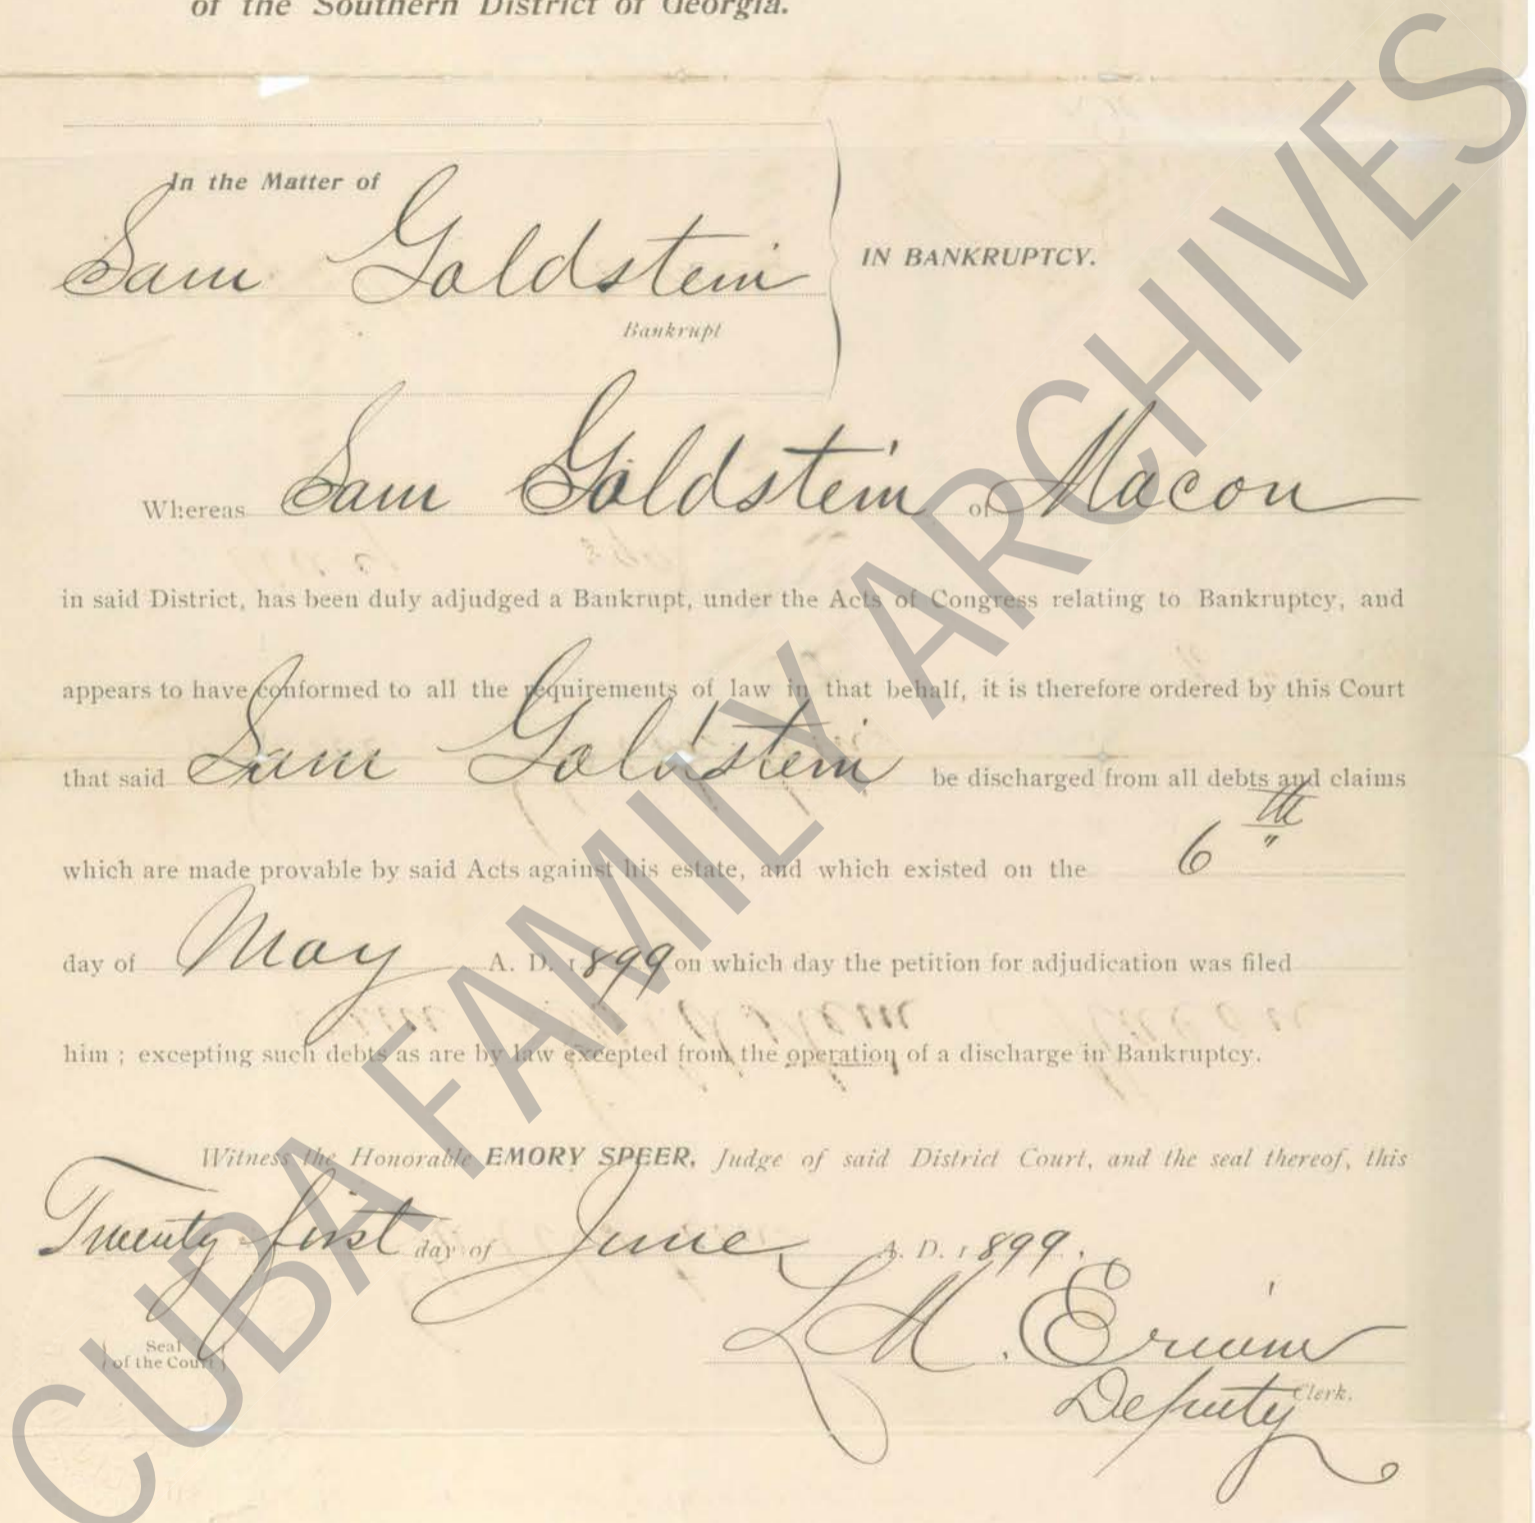 of the Southern District of Georgia.
In the Matter of
Sam Goldstein
Bankrupt
IN BANKRUPTCY.
Whereas Sam Goldstein of Macon
in said District, has been duly adjudged a Bankrupt, under the Acts of Congress relating to Bankruptcy, and
appears to have conformed to all the requirements of law in that behalf, it is therefore ordered by this Court
that said Sam Goldstein be discharged from all debts and claims
which are made provable by said Acts against his estate, and which existed on the 6th
day of May A. D. 1899 on which day the petition for adjudication was filed
him ; excepting such debts as are by law excepted from the operation of a discharge in Bankruptcy.
Witness the Honorable EMORY SPEER, Judge of said District Court, and the seal thereof, this
Twenty first day of June A. D. 1899.
Seal
of the Court
L M. Erwin
Deputy Clerk.
CUBA FAMILY ARCHIVES